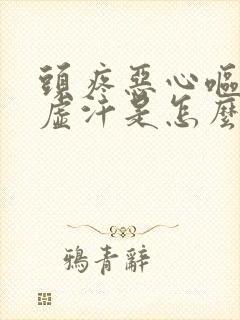 頭疼惡心嘔
虛汗是怎麼
鴉青辭